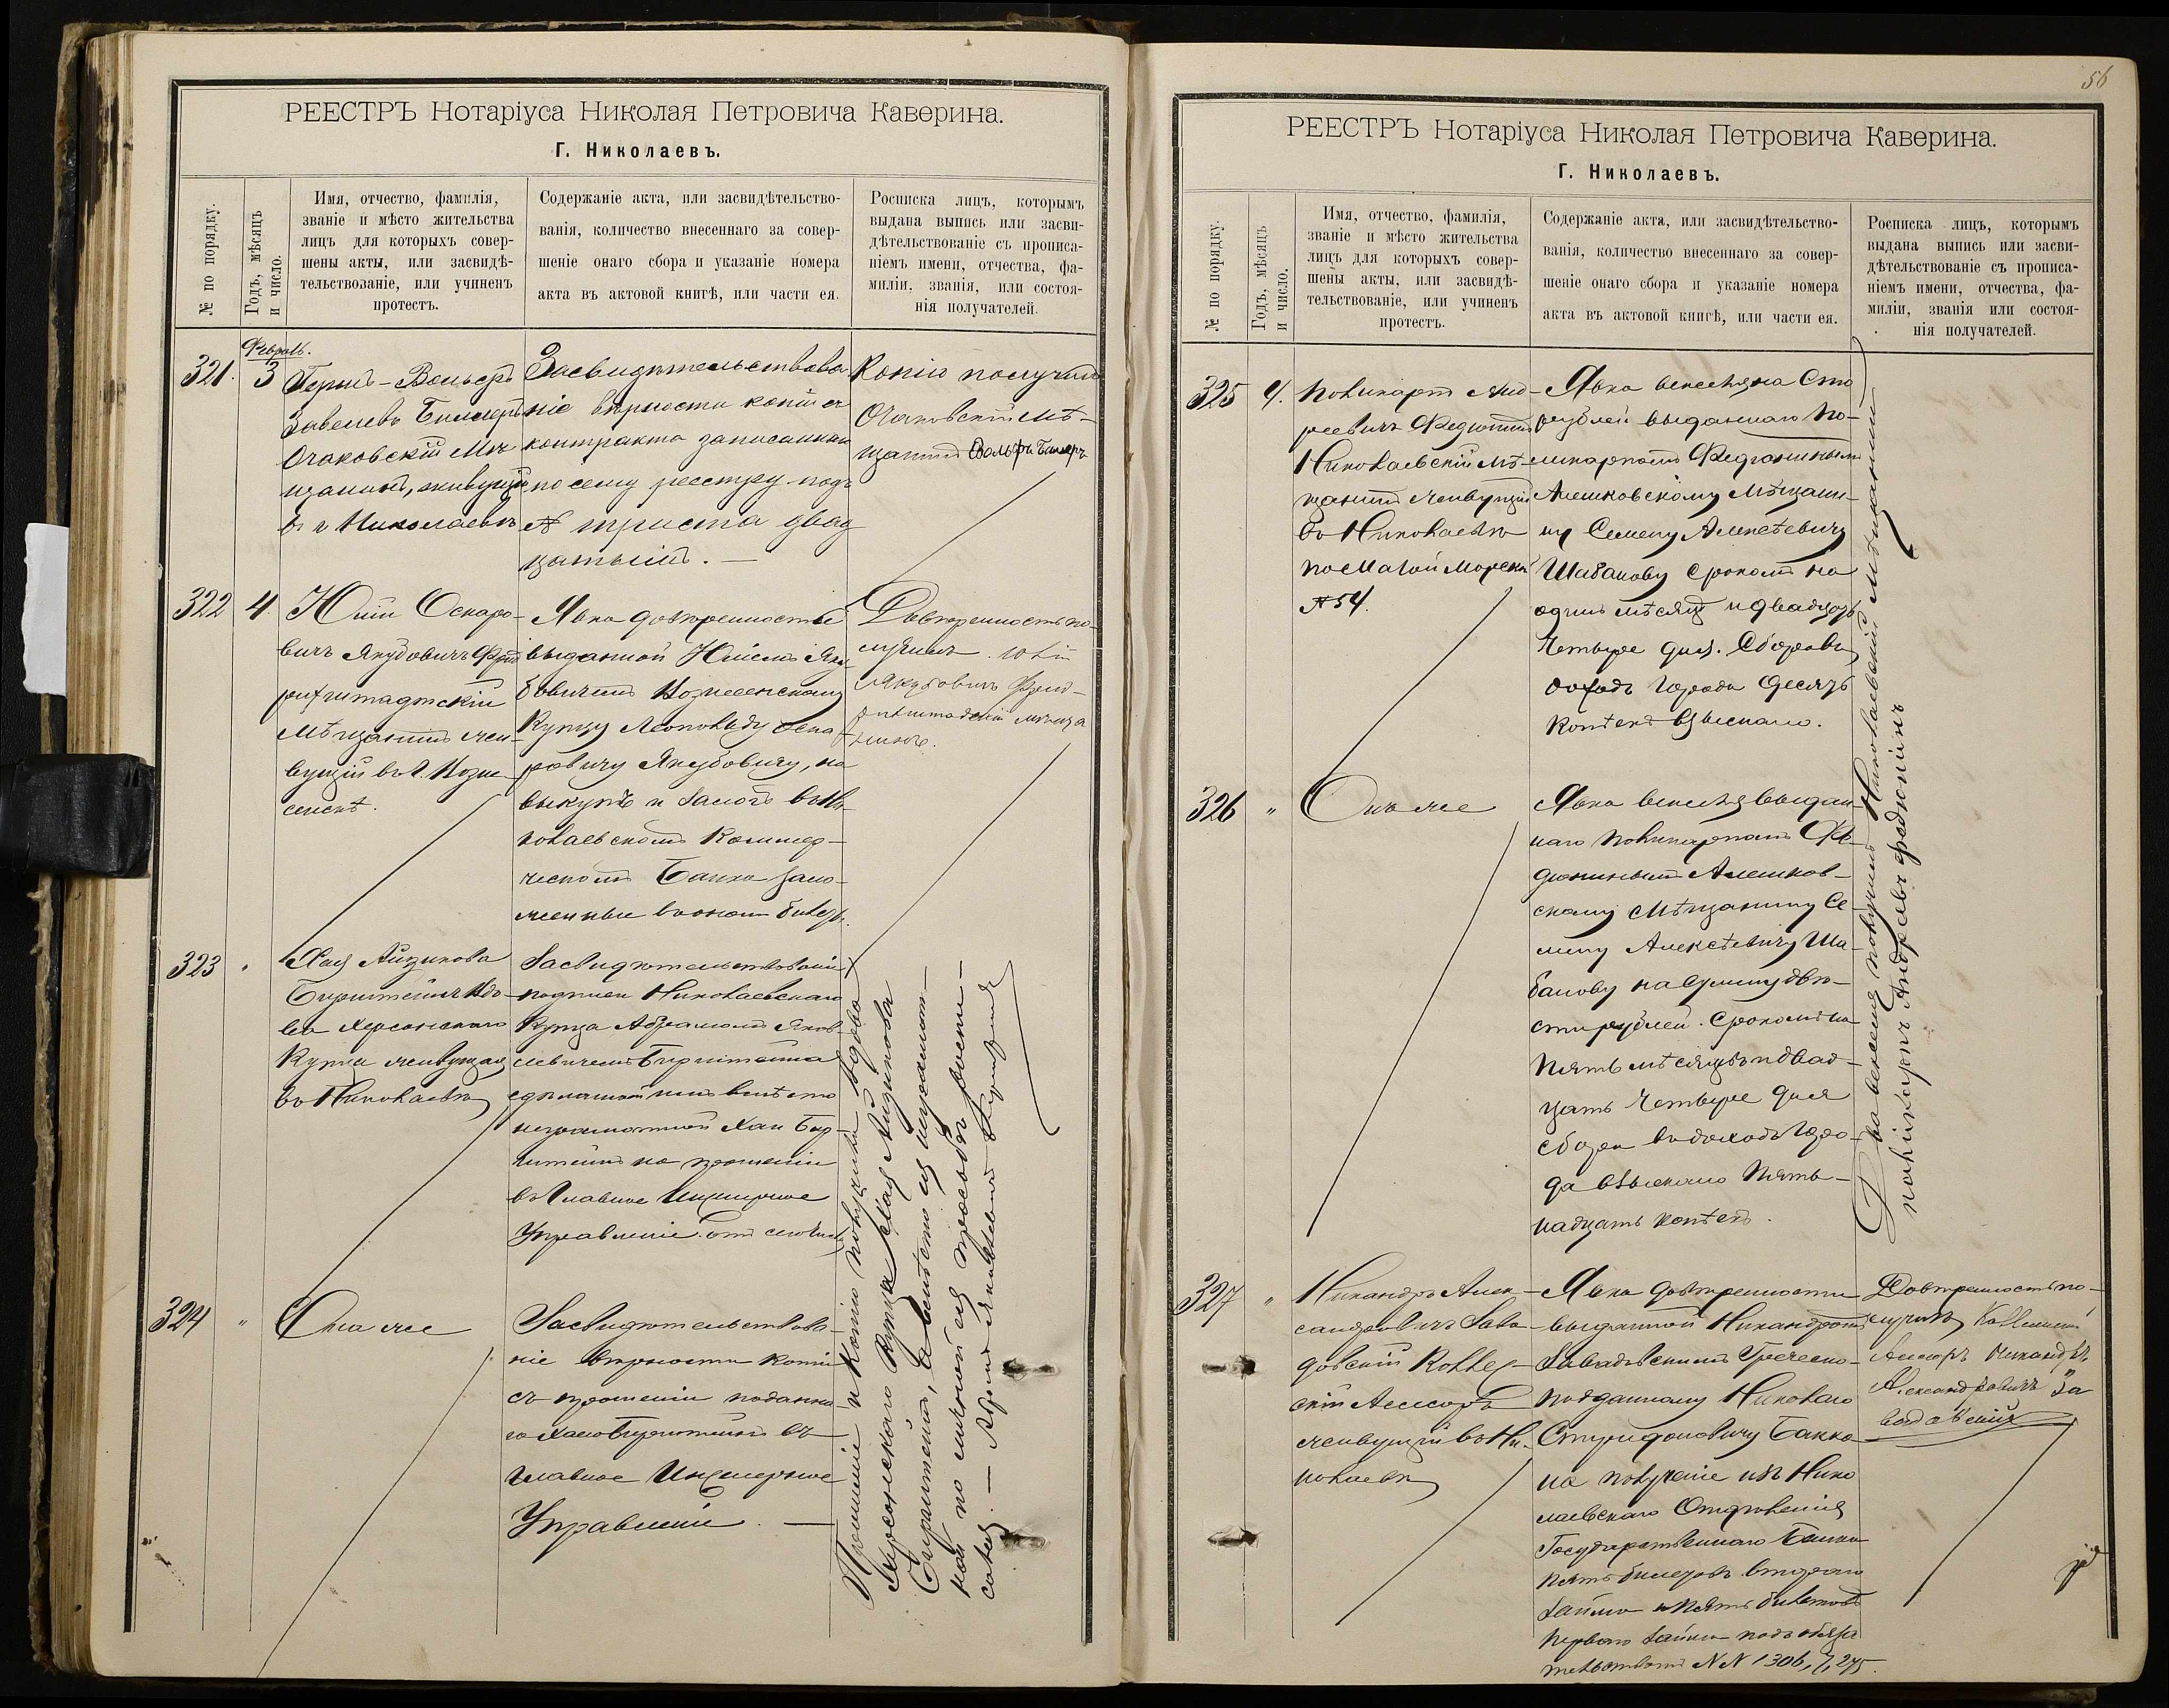 РЕЕСТРЪ Нотаріуса Николая Петровича Каверина.
Г. Николаевъ.
№ по порядку.
Годъ, мѣсяцъ
и число.
Имя, отчество, фамилія,
званіе и мѣсто жительства
лицъ для которыхъ совер-
шены акты, или засвидѣ-
тельствованіе, или учиненъ
протестъ.
Содержаніе акта, или засвидѣтельство-
ванія, количество внесеннаго за совер-
шеніе онаго сбора и указаніе номера
акта въ актовой книгѣ, или части ея.
Росписка лицъ, которымъ
выдана выпись или засви-
дѣтельствованіе съ прописа-
ніемъ имени, отчества, фа-
миліи, званія, или состоя-
нія получателей.
321.
Февраль.
3
Гершъ-Вольфъ
Очаковскій Мѣ-
щанинъ, живущій
въ г. Николаевѣ
Засвидѣтельствова-
ніе вѣрности копіи съ
контракта записаннаго
по сему реестру подъ
№ триста двад
цатымъ. —
Копію получилъ
Очаковскій Мѣ-
щанинъ Вольфъ
322
4.
Юлій Оскаро-
вичъ Якубовичъ
Мѣщанинъ жи-
вущій въ г. Возне
сенскѣ.
Явка довѣренности
выданной Юліемъ Яку
бовичемъ Вознесенскому
Купцу Леопольду Оска
ровичу Якубовичу, на
выкупъ и залогъ въ Ни-
колаевскомъ Коммер-
ческомъ Банкѣ зало-
женные въ ономъ
Довѣренность по-
лучилъ Юлій
Якубовичъ
мѣща
нинъ.
323
"
Хая Айзикова
вдо-
ва Херсонскаго
Купца живущая
въ Николаевѣ
Засвидѣтельствованіе
подписи Николаевскаго
Купца Абрамомъ Яков
левичемъ
сдѣланной имъ вмѣсто
неграмотной Хаи
на прошеніи
въ Главное Инженерное
Управленіе
324
"
Она же
Засвидѣтельствова-
ніе вѣрности копіи
съ прошенія поданна-
го Хаею въ
Главное Инженерное
Управленіе. —
Прошеніе и копію получила вдова
Херсонскаго Купца Хая Айзикова
а вмѣсто ея неграмот-
ной по личной ея просьбѣ роспи-
сался. — Абрамъ Яковлевичъ
56
РЕЕСТРЪ Нотаріуса Николая Петровича Каверина.
Г. Николаевъ.
№ по порядку.
Годъ, мѣсяцъ
и число.
Имя, отчество, фамилія,
званіе и мѣсто жительства
лицъ для которыхъ совер-
шены акты, или засвидѣ-
тельствованіе, или учиненъ
протестъ.
Содержаніе акта, или засвидѣтельство-
ванія, количество внесеннаго за совер-
шеніе онаго сбора и указаніе номера
акта въ актовой книгѣ, или части ея.
Росписка лицъ, которымъ
выдана выпись или засви-
дѣтельствованіе съ прописа-
ніемъ имени, отчества, фа-
миліи, званія или состоя-
нія получателей.
325
4.
Поликарпъ Анд-
реевичъ Федюнинъ
Николаевскій Мѣ-
щанинъ живущій
въ Николаевѣ
по Малой Морской
№ 54.
Явка векселя на Сто
рублей выданнаго По-
ликарпомъ Федюнинымъ
Алешковскому Мѣщани-
ну Семену Алексѣевичу
Шабанову срокомъ на
одинъ мѣсяцъ и двадцать
четыре дня. Сбора въ
доходъ города десять
копѣекъ взыскано.
326
"
Онъ же
Явка векселя выдан-
наго Поликарпомъ Фе-
дюнинымъ Алешков-
скому Мѣщанину Се-
мену Алексѣевичу Ша-
банову на сумму двѣ-
сти рублей. Срокомъ на
пять мѣсяцевъ и двад-
цать четыре дня
сбора въ доходъ горо-
да взыскано пять-
надцать копѣекъ.
Два векселя получилъ Николаевскій Мѣщанинъ
Поликарпъ Андреевъ Федюнинъ
327
"
Никандръ Алек-
сандровичъ Зава-
довскій Коллеж-
скій Ассесоръ
живущій въ Ни-
колаевѣ
Явка довѣренности
выданной Никандромъ
Завадовскимъ Греческо-
подданному Николаю
Спиридоновичу
на полученіе изъ Нико
лаевскаго Отдѣленія
Государственнаго Банка
пять билетовъ втораго
займа и пять билетовъ
перваго займа подъ обяза
тельствомъ NN 1306, 7, 275.
Довѣренность по-
лучилъ Коллежскій
Ассесоръ Никандръ
Александровичъ За
вадовскій